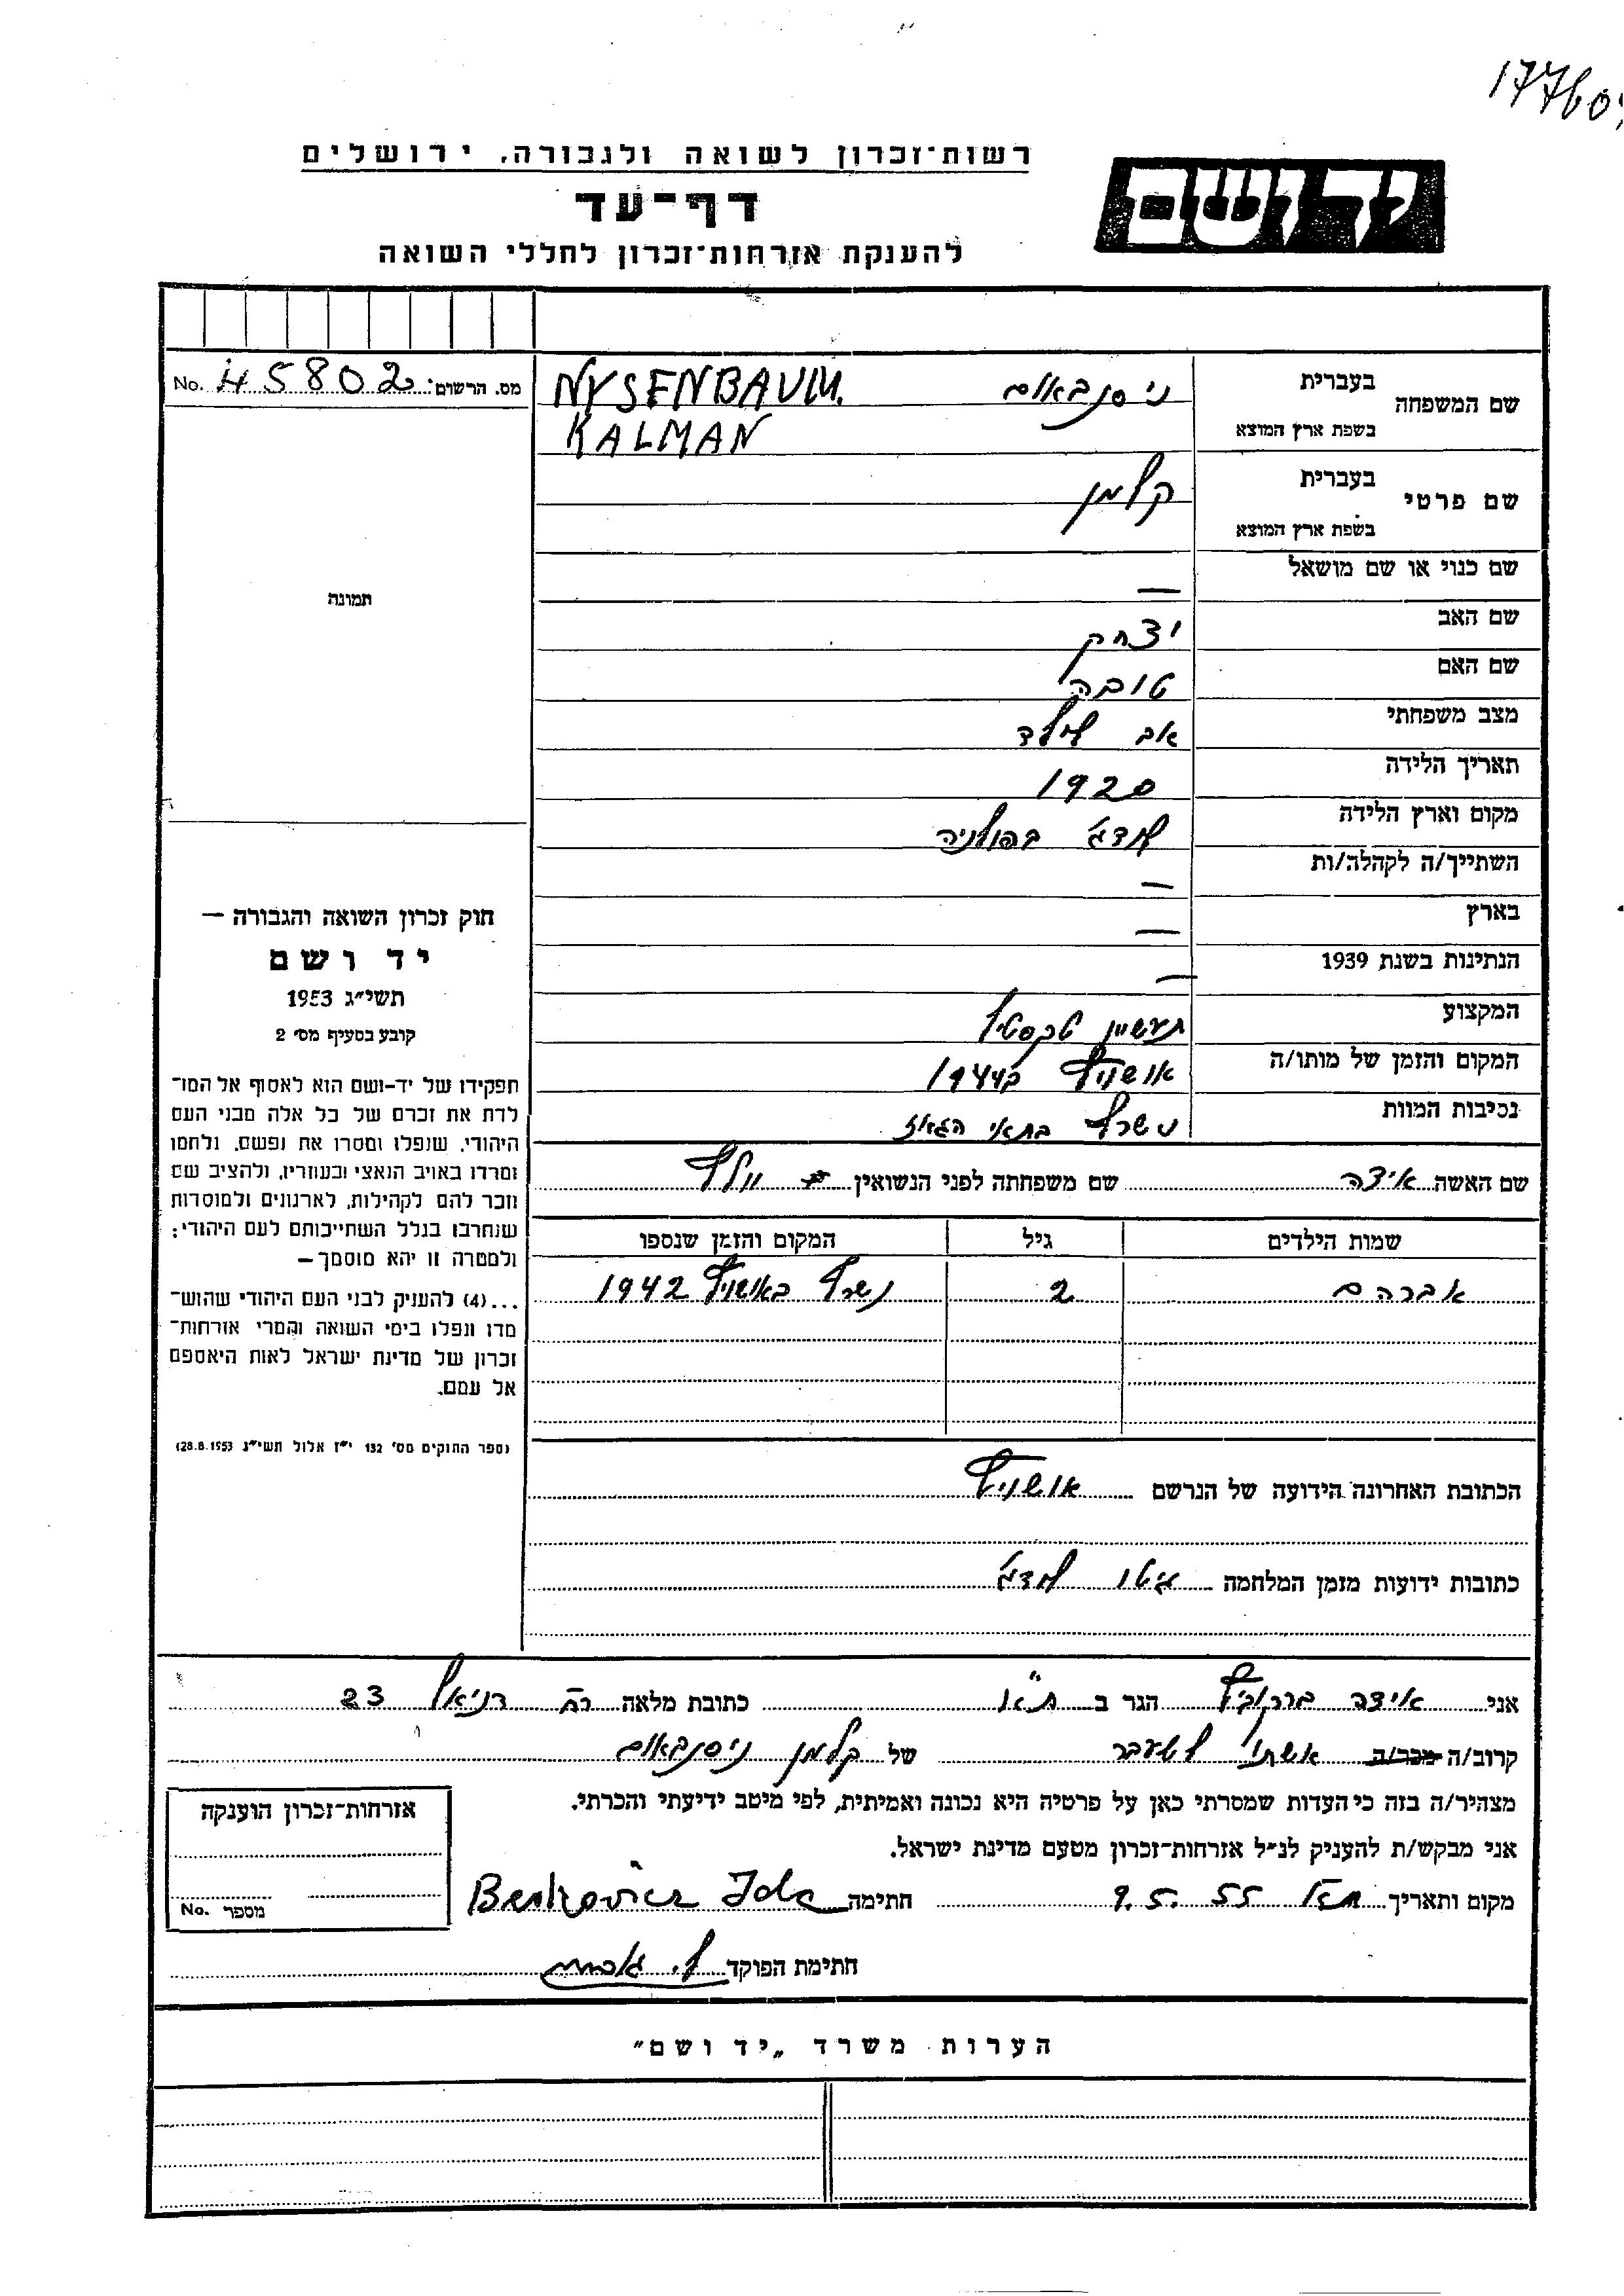 177604
רשות־זכרון לשואה ולגבורה, ירושלים
יד ושם
דף־עד
להענקת אזרחות־זכרון לחללי השואה
No. 45802 מס. הרשום:
שם המשפחה
בעברית
ניסנבאום
בשפת ארץ המוצא
NYSENBAUM.
KALMAN
שם פרטי
בעברית
קלמן
בשפת ארץ המוצא
שם כנוי או שם מושאל —
שם האב יצחק
שם האם טובה
מצב משפחתי אב לילד
תאריך הלידה 1920
מקום וארץ הלידה לודג' בפולניה
השתייך/ה לקהלה/ות —
בארץ —
הנתינות בשנת 1939 —
המקצוע תעשיין טכסטיל
המקום והזמן של מותו/ה אושויץ ב1944
נסיבות המוות נשרף בתאי הגאז
תמונה
חוק זכרון השואה והגבורה —
יד ושם
תשי״ג 1953
קובע בסעיף מס׳ 2
תפקידו של יד-ושם הוא לאסוף אל המו־
לדת את זכרם של כל אלה מבני העם
היהודי, שנפלו ומסרו את נפשם, נלחמו
ומרדו באויב הנאצי ובעוזריו, ולהציב שם
וזכר להם לקהילות, לארגונים ולמוסדות
שנחרבו בגלל השתייכותם לעם היהודי;
ולמטרה זו יהא מוסמך —
...(4) להעניק לבני העם היהודי שהוש־
מדו ונפלו בימי השואה והמרי אזרחות־
זכרון של מדינת ישראל לאות היאספם
אל עמם.
(ספר החוקים מס׳ 132 י״ז אלול תשי״ג 28.8.1953)
שם האשה אידה שם משפחתה לפני הנשואין וולף
שמות הילדים גיל המקום והזמן שנספו
אברהם 2 נשרף באושויץ 1942
הכתובת האחרונה הידועה של הנרשם אושויץ
כתובות ידועות מזמן המלחמה גיטו לודג'
אני אידה ברקוביץ הגר ב ת"א כתובת מלאה רח' דניאל 23
קרוב/ה מכר/ה אשתו לשעבר של קלמן ניסנבאום
מצהיר/ה בזה כי העדות שמסרתי כאן על פרטיה היא נכונה ואמיתית, לפי מיטב ידיעתי והכרתי.
אני מבקש/ת להעניק לנ״ל אזרחות־זכרון מטעם מדינת ישראל.
מקום ותאריך 9.5.55 חתימה Berkovicz Ida
חתימת הפוקד
אזרחות־זכרון הוענקה
No. מספר
הערות משרד „יד ושם״